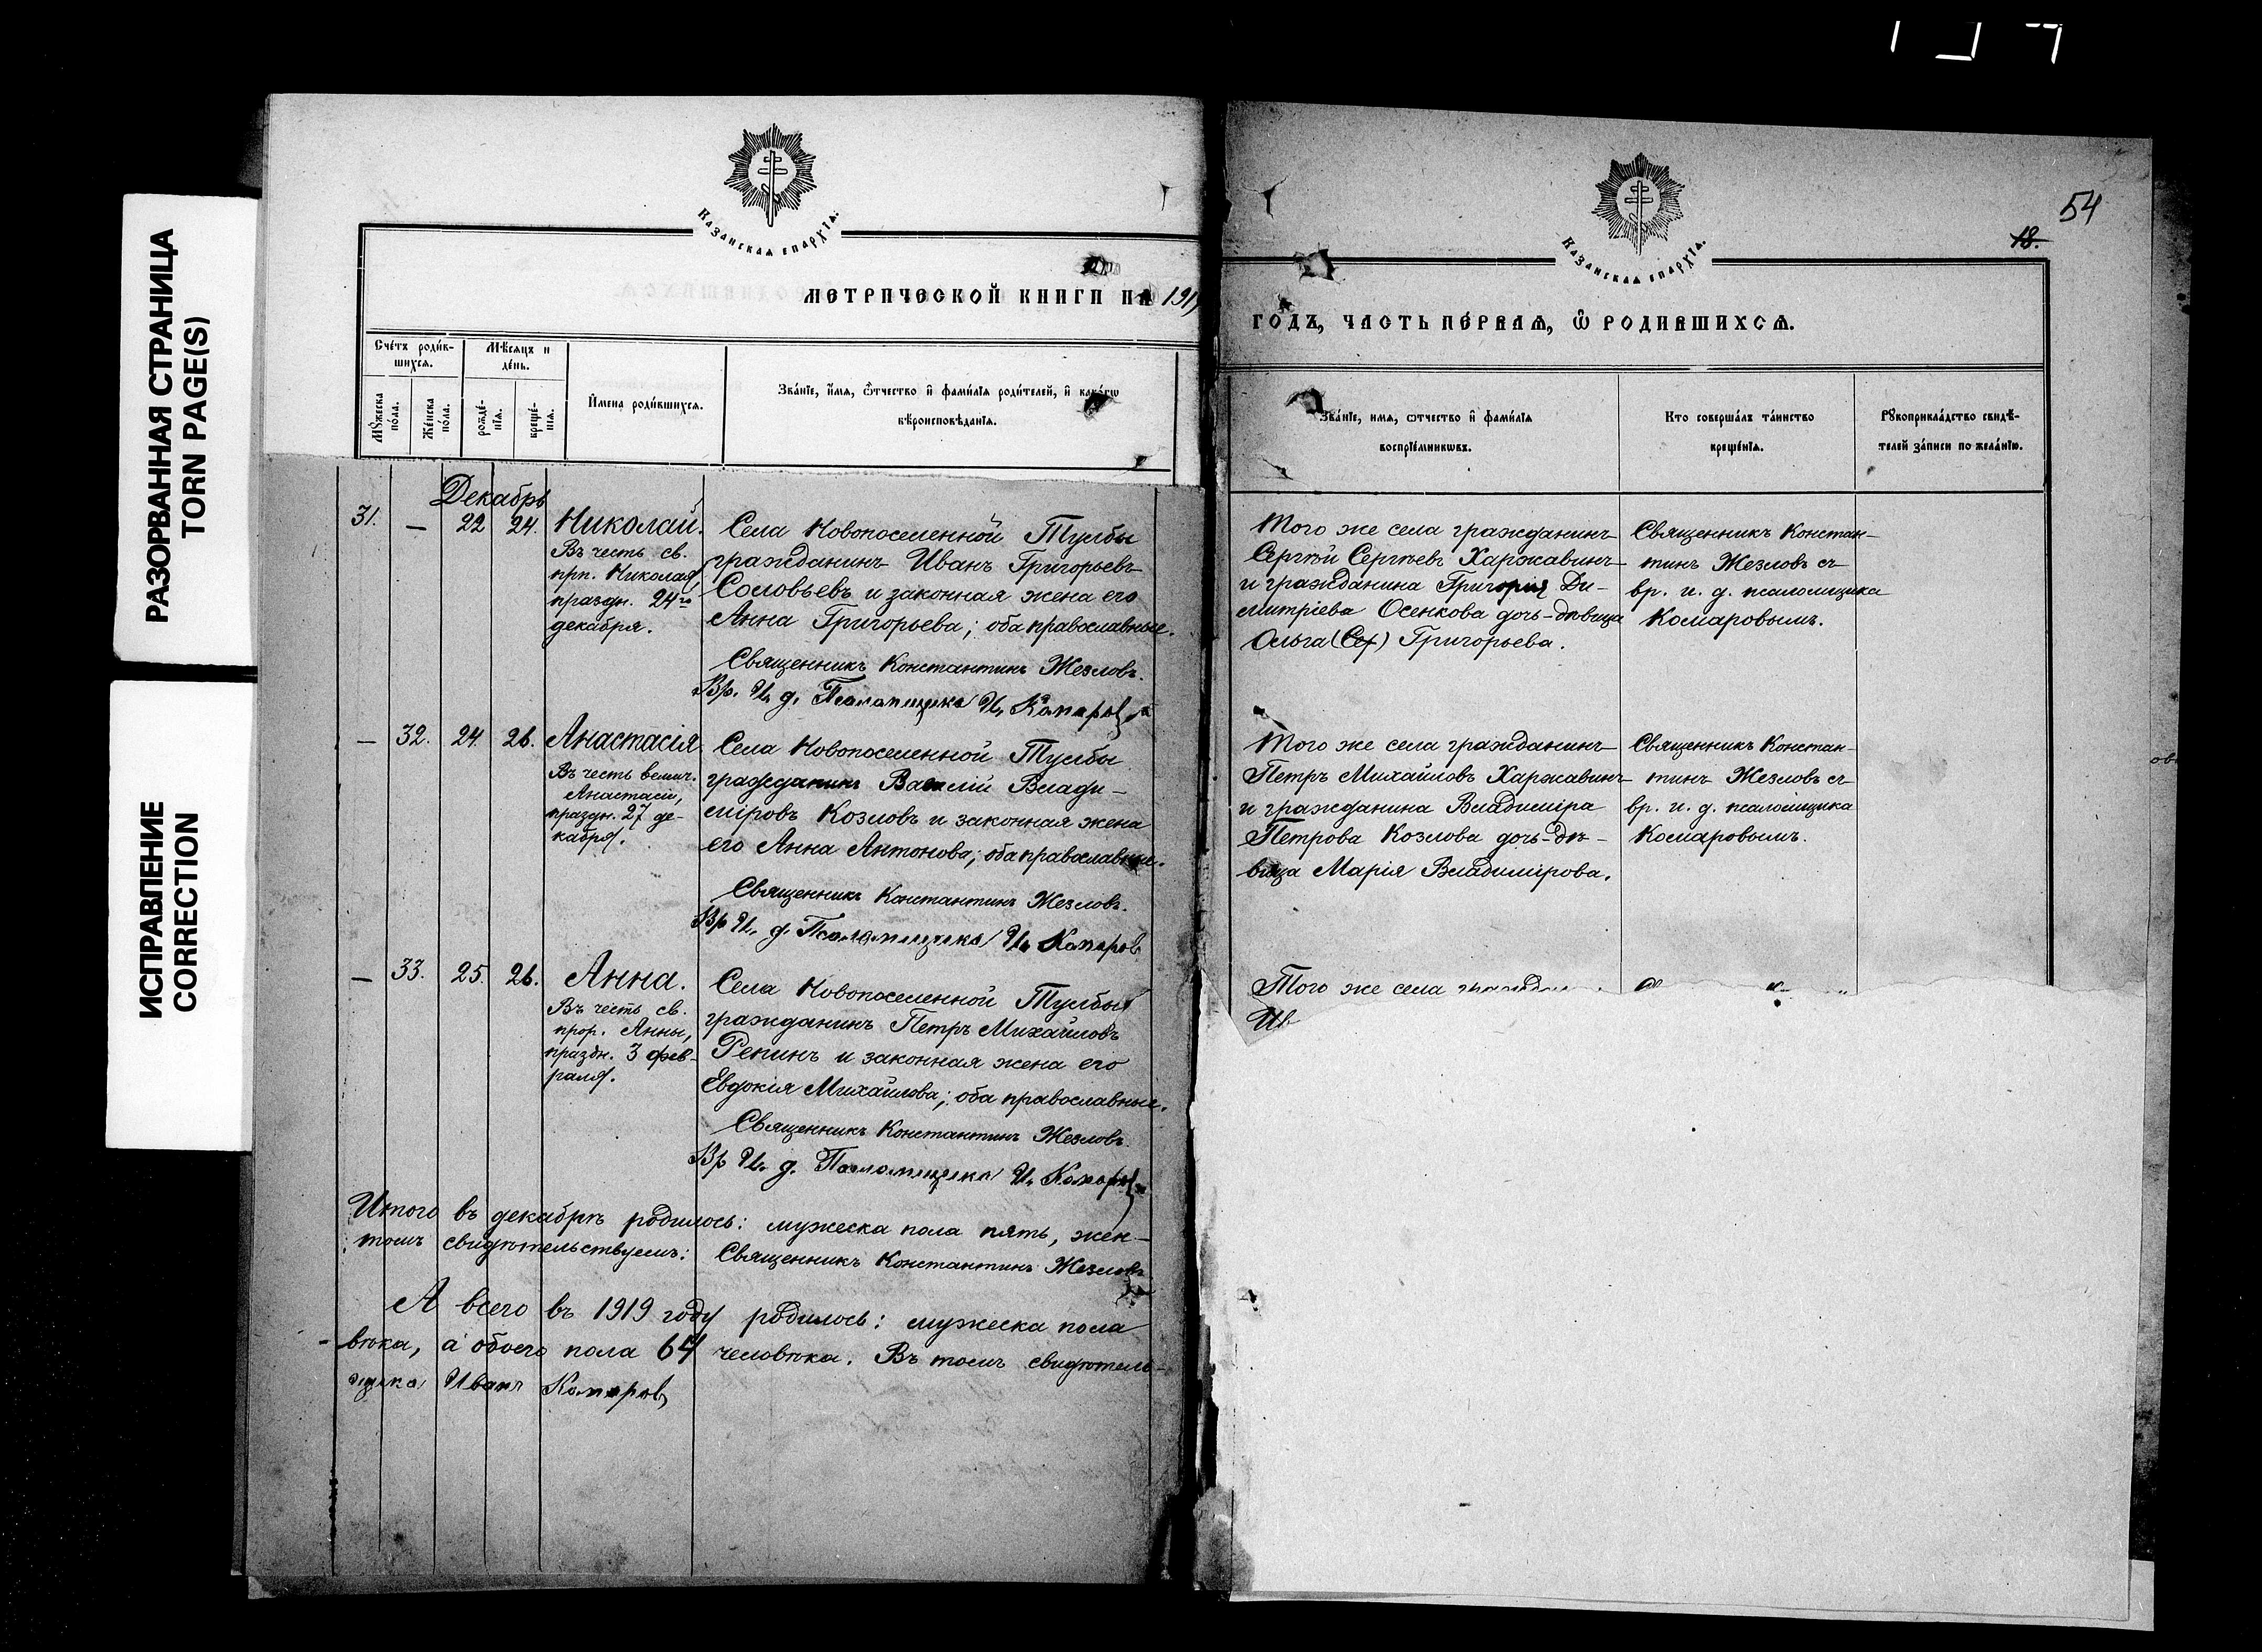 РАЗОРВАННАЯ СТРАНИЦА
TORN PAGE(S)
ИСПРАВЛЕНИЕ
CORRECTION
Казанская епархіѧ.
МЕТРИЧЕСКОЙ КНИГИ НА 1919
Счётъ роди́в-
шихся.
Мѣсяцъ и
де́нь.
Мꙋжеска
пола.
Же́нска
по́ла.
рожде́-
нїя.
креще́-
нїя.
И́мена роди́вшихся.
Зва́нїе, и́мя, ѻ҆́тчество и҆ фами́лїя роди́телей, и҆ како́гѡ
вѣроисповѣданїя.
Декабрь
31. — 22 24. Николай.
Въ честь св.
прп. Николая,
праздн. 24го
декабря.
Села Новопоселенной Тумбы
гражданинъ Иванъ Григорьевъ
Соловьевъ и законная жена его
Анна Григорьева; оба православные.
Священникъ Константинъ Жезловъ.
Вр. И. д. Псаломщика И. Комаровъ
— 32. 24. 26. Анастасія.
Въ честь велич.
Анастасіи,
праздн. 27 де-
кабря.
Села Новопоселенной Тумбы
гражданинъ Василій Влади-
міровъ Козловъ и законная жена
его Анна Антонова; оба православные.
Священникъ Константинъ Жезловъ.
Вр И. д. Псаломщика И. Комаровъ
— 33. 25. 26. Анна.
Въ честь св.
прор. Анны,
праздн. 3 фев-
раля.
Села Новопоселенной Тумбы
гражданинъ Петръ Михайловъ
Репинъ и законная жена его
Евдокія Михайлова; оба православные.
Священникъ Константинъ Жезловъ.
Вр И. д. Псаломщика И. Комаровъ
Итого въ декабрѣ родилось: мужеска пола пять, жен-
томъ свидѣтельствуемъ: Священникъ Константинъ Жезловъ
А всего въ 1919 году родилось: мужеска пола
вѣка, а обоего пола 64 человѣка. Въ томъ свидѣтель-
щика Иванъ Комаровъ
54
18.
Казанская епархіѧ.
ГОДЪ, ЧАСТЬ ПЕ́РВАЯ, Ѽ РОДИВШИХСѦ.
Зва́нїе, имя, ѡтчество и҆ фами́лїя
воспрїе́мникѡвъ.
Кто соверша́лъ та́инство
креще́нїя.
Рꙋкоприкла́дство свидѣ́-
телей за́писи по жела́нїю.
Того же села гражданинъ
Сергѣй Сергѣевъ Харжавинъ
и гражданина Григорія Ди-
митріева Осенкова дочь-дѣвица
Ольга (Сер) Григорьева.
Священникъ Констан-
тинъ Жезловъ съ
вр. и. д. псаломщика
Комаровымъ.
Того же села гражданинъ
Петръ Михайловъ Харжавинъ
и гражданина Владиміра
Петрова Козлова дочь-дѣ-
вица Марія Владимірова.
Священникъ Констан-
тинъ Жезловъ съ
вр. и. д. псаломщика
Комаровымъ.
Того же села
Ив